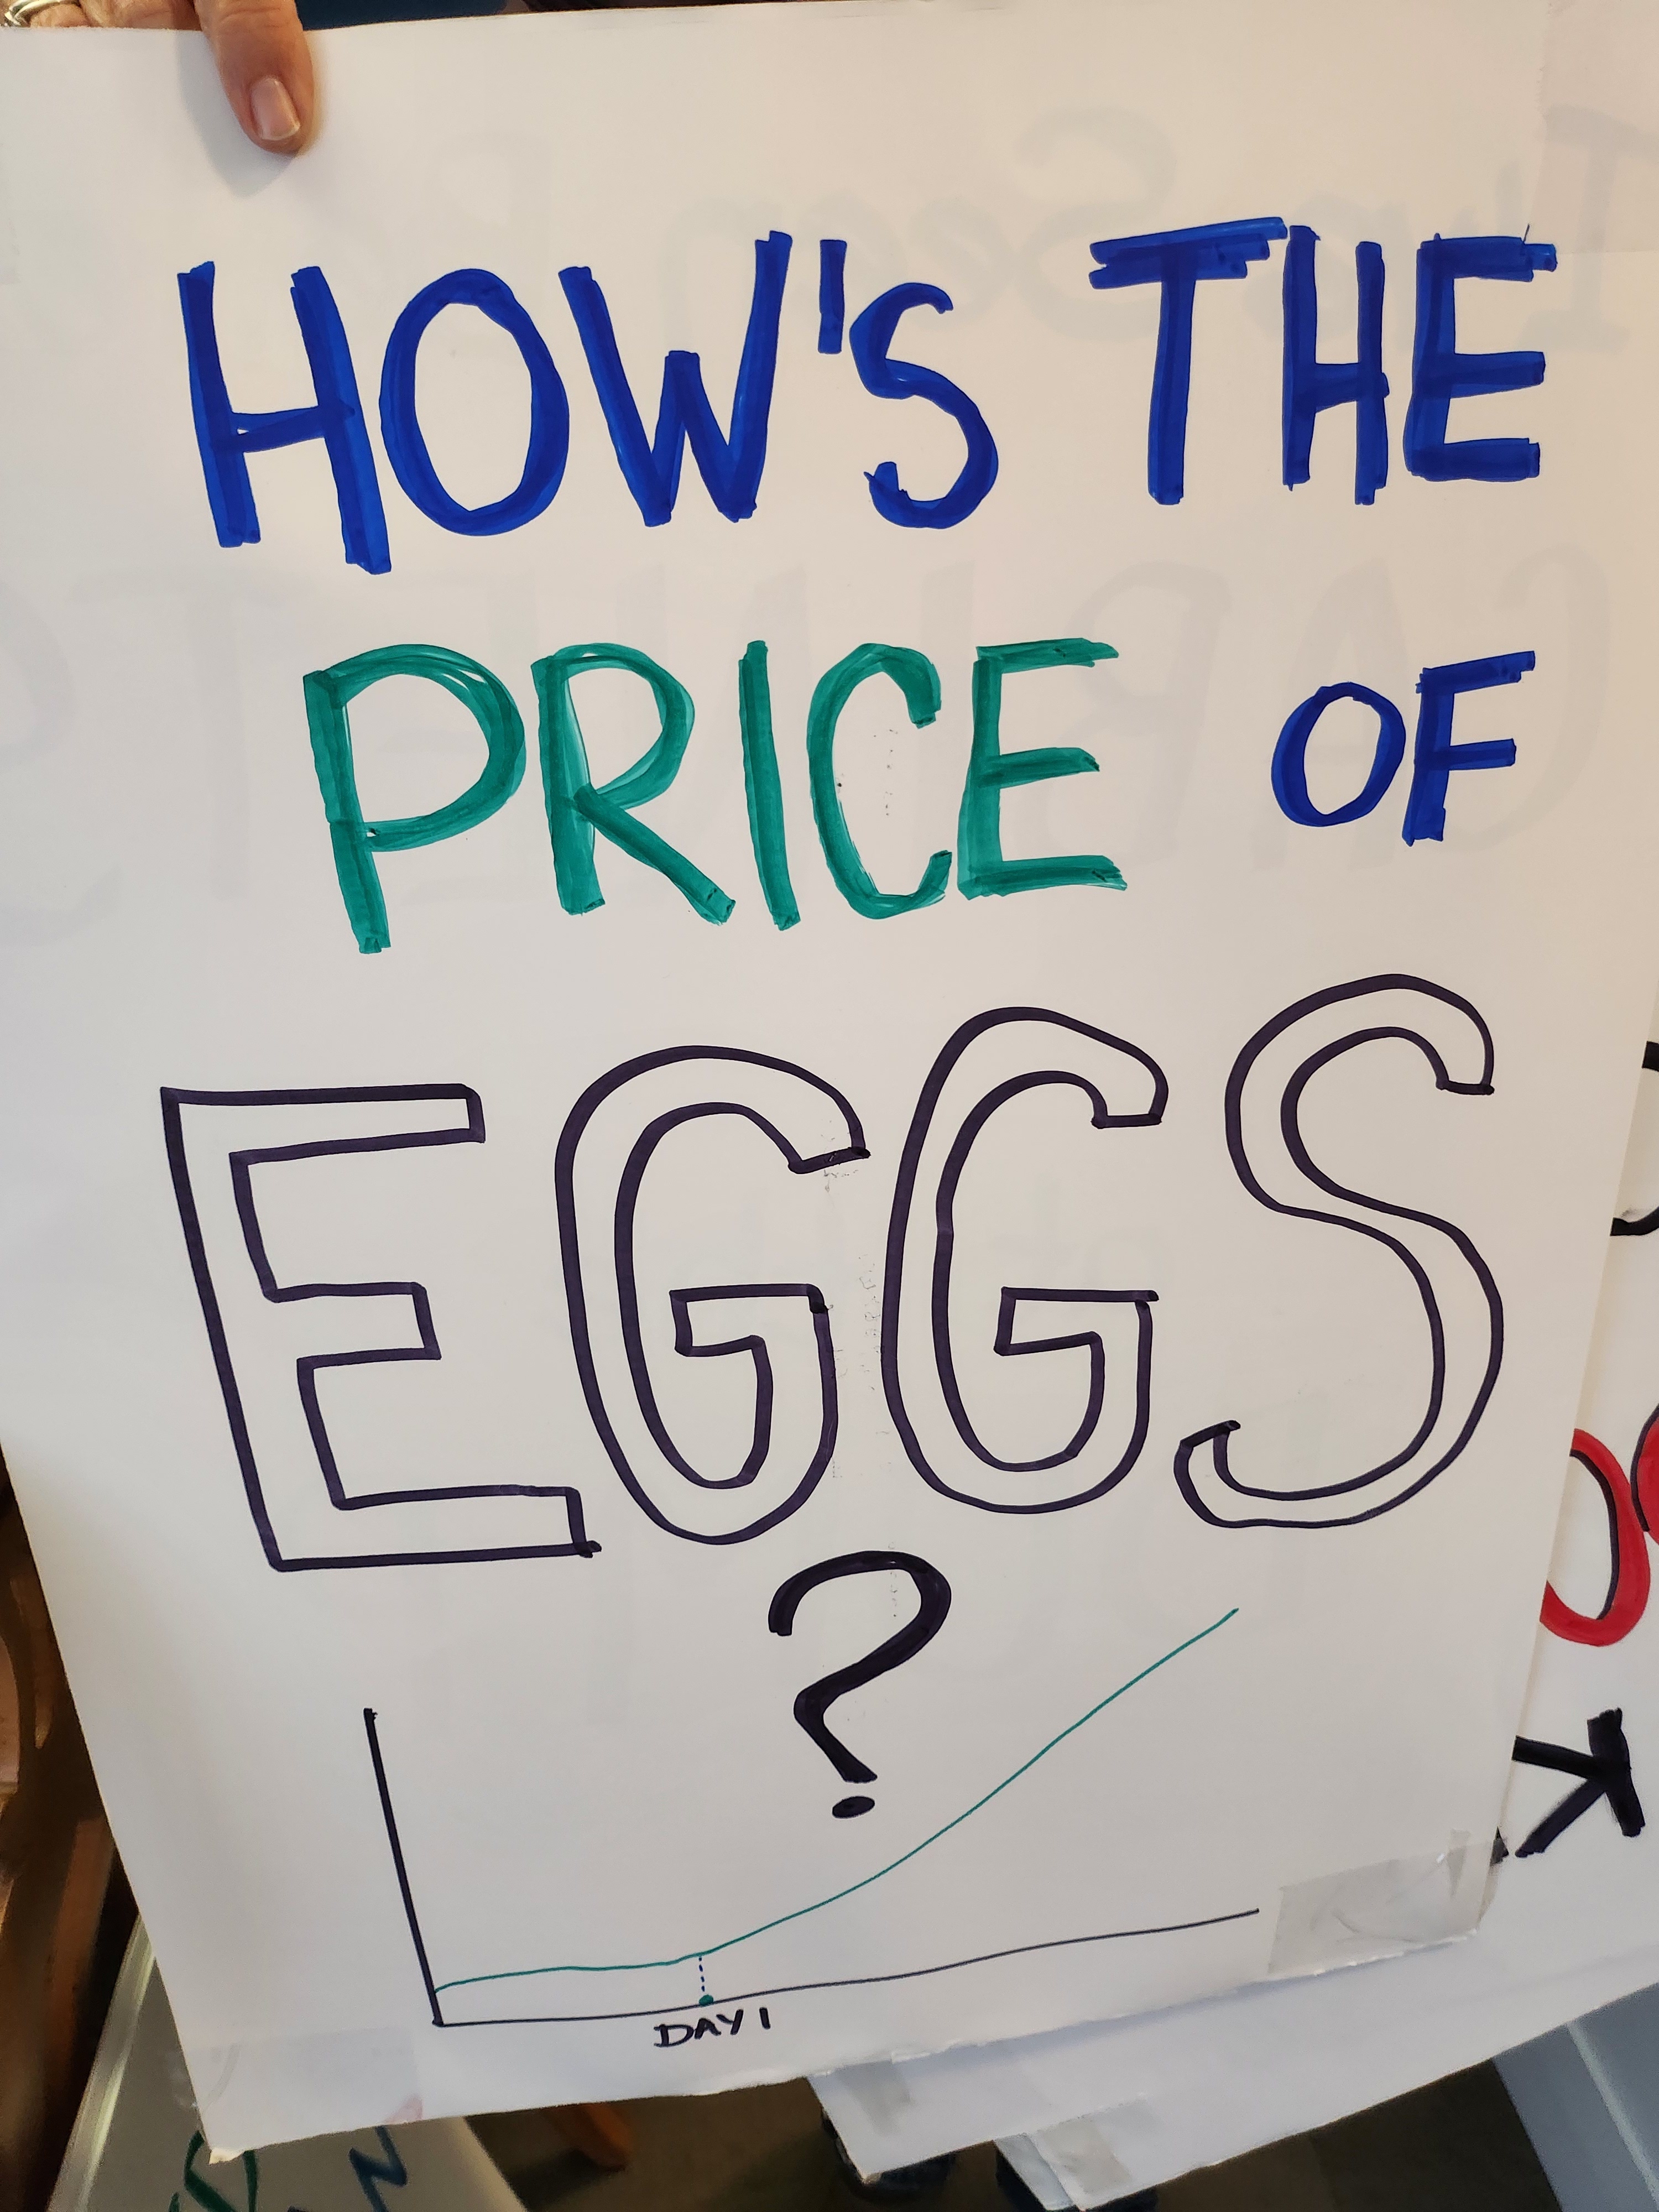 HOW'S THE
PRICE OF
EGGS
?
DAY 1